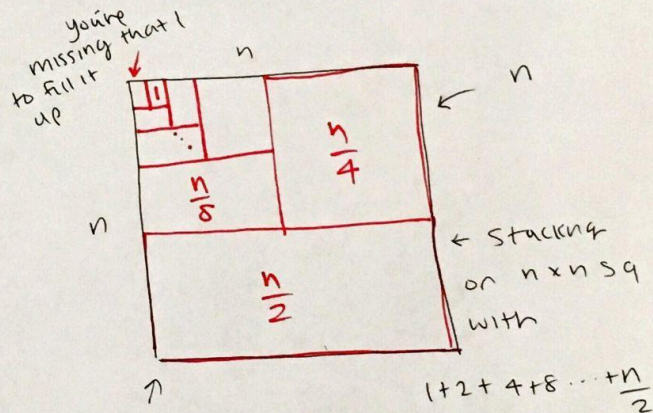 you're
missing that 1
to fill it
up
n
n
1
n/4
n/8
n
← stacking
on n x n sq
with
n/2
1+2+4+8 ... + n/2